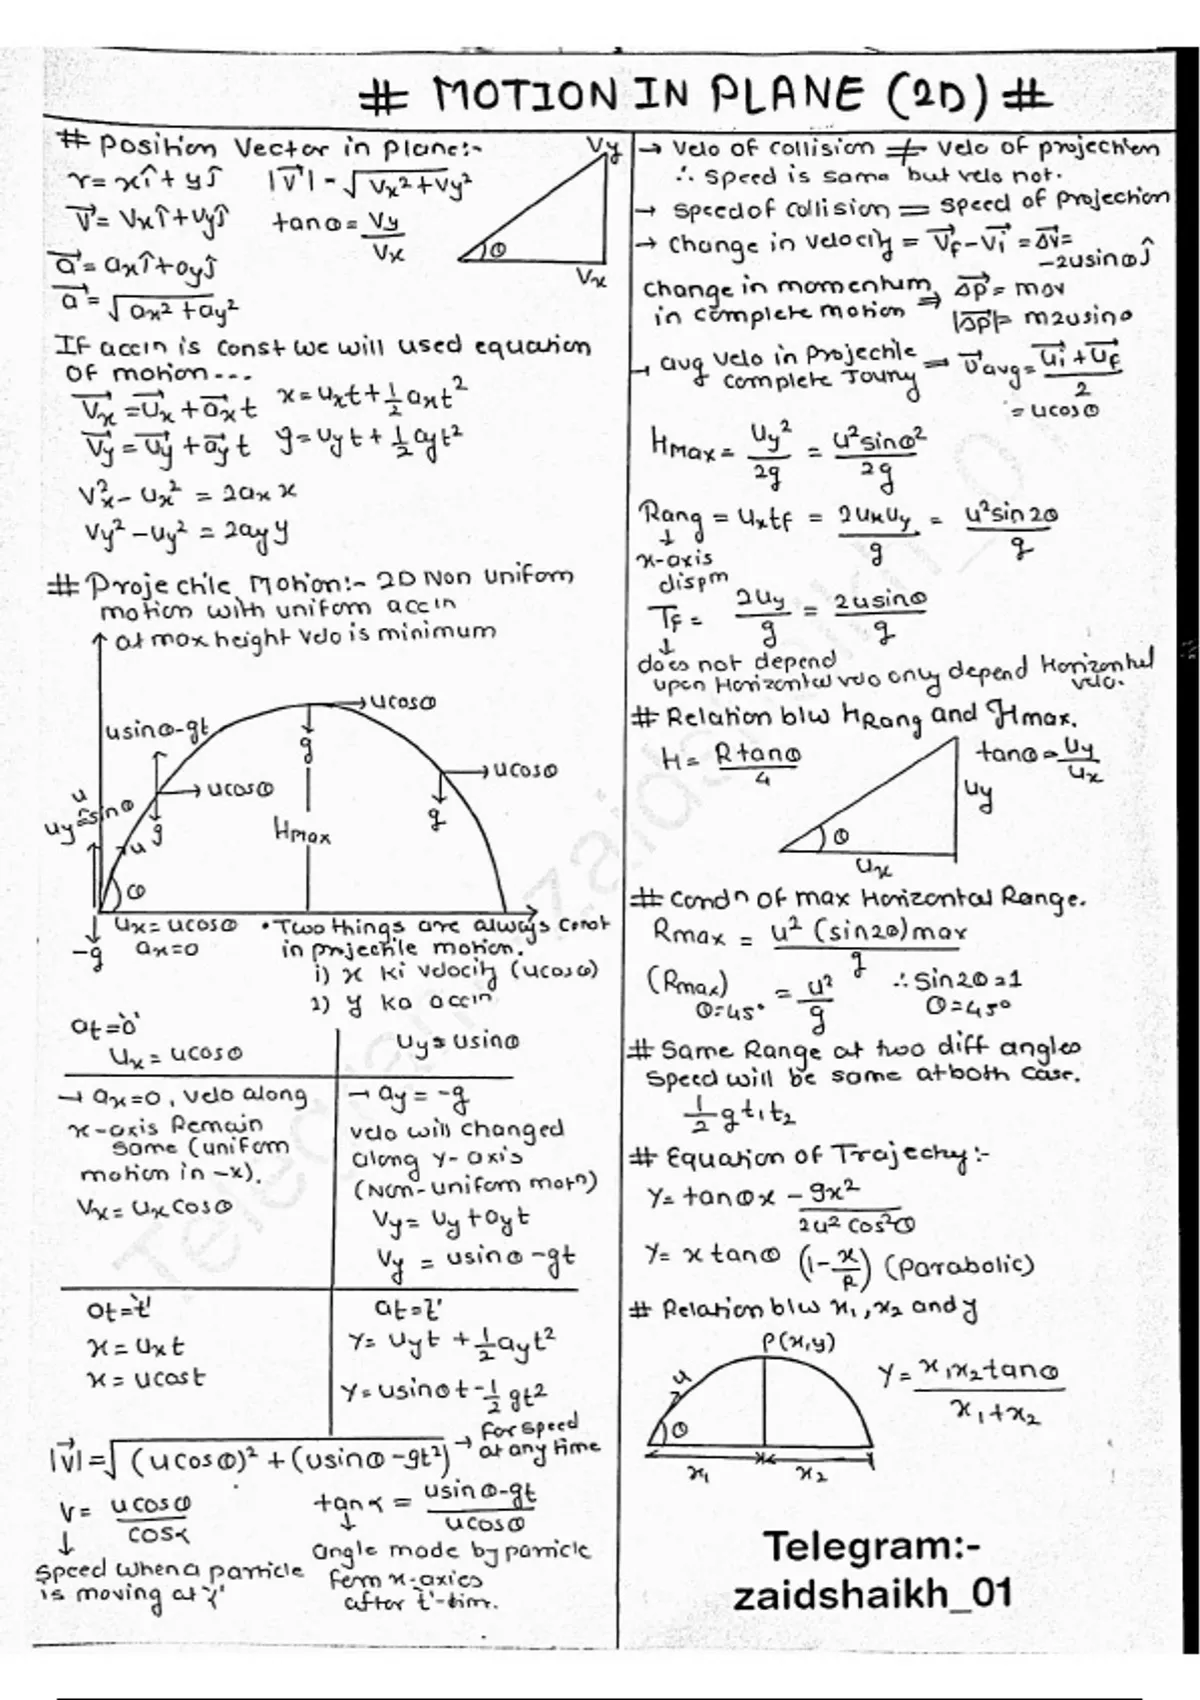 # MOTION IN PLANE (2D) #
# Position Vector in plane:-
r = xî + yĵ
|V⃗| - √Vx² + Vy²
V⃗ = Vxî + Vyĵ
tanθ = Vy/Vx
a⃗ = axî + ayĵ
a⃗ = √ax² + ay²
Vy
θ
Vx
If accln is const we will used equation
of motion...
V⃗x = U⃗x + a⃗xt
x = uxt + 1/2 axt²
V⃗y = U⃗y + a⃗yt
y = uyt + 1/2 ayt²
Vx² - ux² = 2ax x
Vy² - uy² = 2ay y
# Projectile Motion:- 2D Non uniform
motion with uniform accln
at max height velo is minimum
ucosθ
usinθ-gt
g
ucosθ
ucosθ
g
g
u
uy = sinθ
u
Hmax
θ
-g
ux = ucosθ
ax = 0
• Two things are always const
in projectile motion.
1) x ki velocity (ucosθ)
2) y ka accln
at = '0'
Ux = ucosθ
Uy = usinθ
→ ax = 0, velo along
x-axis Remain
Same (uniform
motion in -x).
Vx = Ux cosθ
→ ay = -g
velo will changed
along y-axis
(Non-uniform motn)
Vy = Uy + ayt
Vy = usinθ - gt
at = 't'
x = Uxt
x = ucost
at = 't'
Y = Uyt + 1/2 ayt²
Y = usinθt - 1/2 gt²
|V⃗| = √(ucosθ)² + (usinθ - gt²) → For speed
at any time
V = ucosθ/cosα
↓
Speed when a particle
is moving at 't'
tanα = usinθ-gt/ucosθ
↓
angle made by particle
ferm x-axies
after t'-tim.
→ Velo of collision ≠ Velo of projection
∴ speed is same but velo not.
→ Speed of collision = Speed of Projection
→ change in velocity = V⃗f - V⃗i = Δv⃗ =
-2usinθĵ
change in momentum
in complete motion ⇒ Δp⃗ = mΔv
|Δp⃗| = m2usinθ
→ avg velo in Projectile
complete Jouny = v⃗avg = u⃗i + u⃗f/2
= ucosθ
Hmax = Uy²/2g = u²sinθ²/2g
Rang = Uxtf = 2UxUy/g = u²sin2θ/g
↓
x-axis
dispm
TF = 2Uy/g = 2usinθ/g
↓
does not depend
upon Horizontal velo only depend Horizontal
velo.
# Relation b/w HRang and Hmax.
H = Rtanθ/4
tanθ = Uy/Ux
Uy
θ
Ux
# Condn of max Horizontal Range.
Rmax = u² (sin2θ)max/g
(Rmax)θ=45° = u²/g
∴ Sin2θ = 1
θ = 45°
# Same Range at two diff angles
Speed will be same at both case.
1/2 gt₁t₂
# Equation of Trajectry:-
Y = tanθx - gx²/2u²cos²θ
Y = x tanθ (1 - x/R) (Parabolic)
# Relation b/w x₁, x₂ and y
P(x,y)
u
θ
x₁
x₂
Y = x₁x₂tanθ/x₁+x₂
Telegram:-
zaidshaikh_01
Telegram: zaidshaikh_01